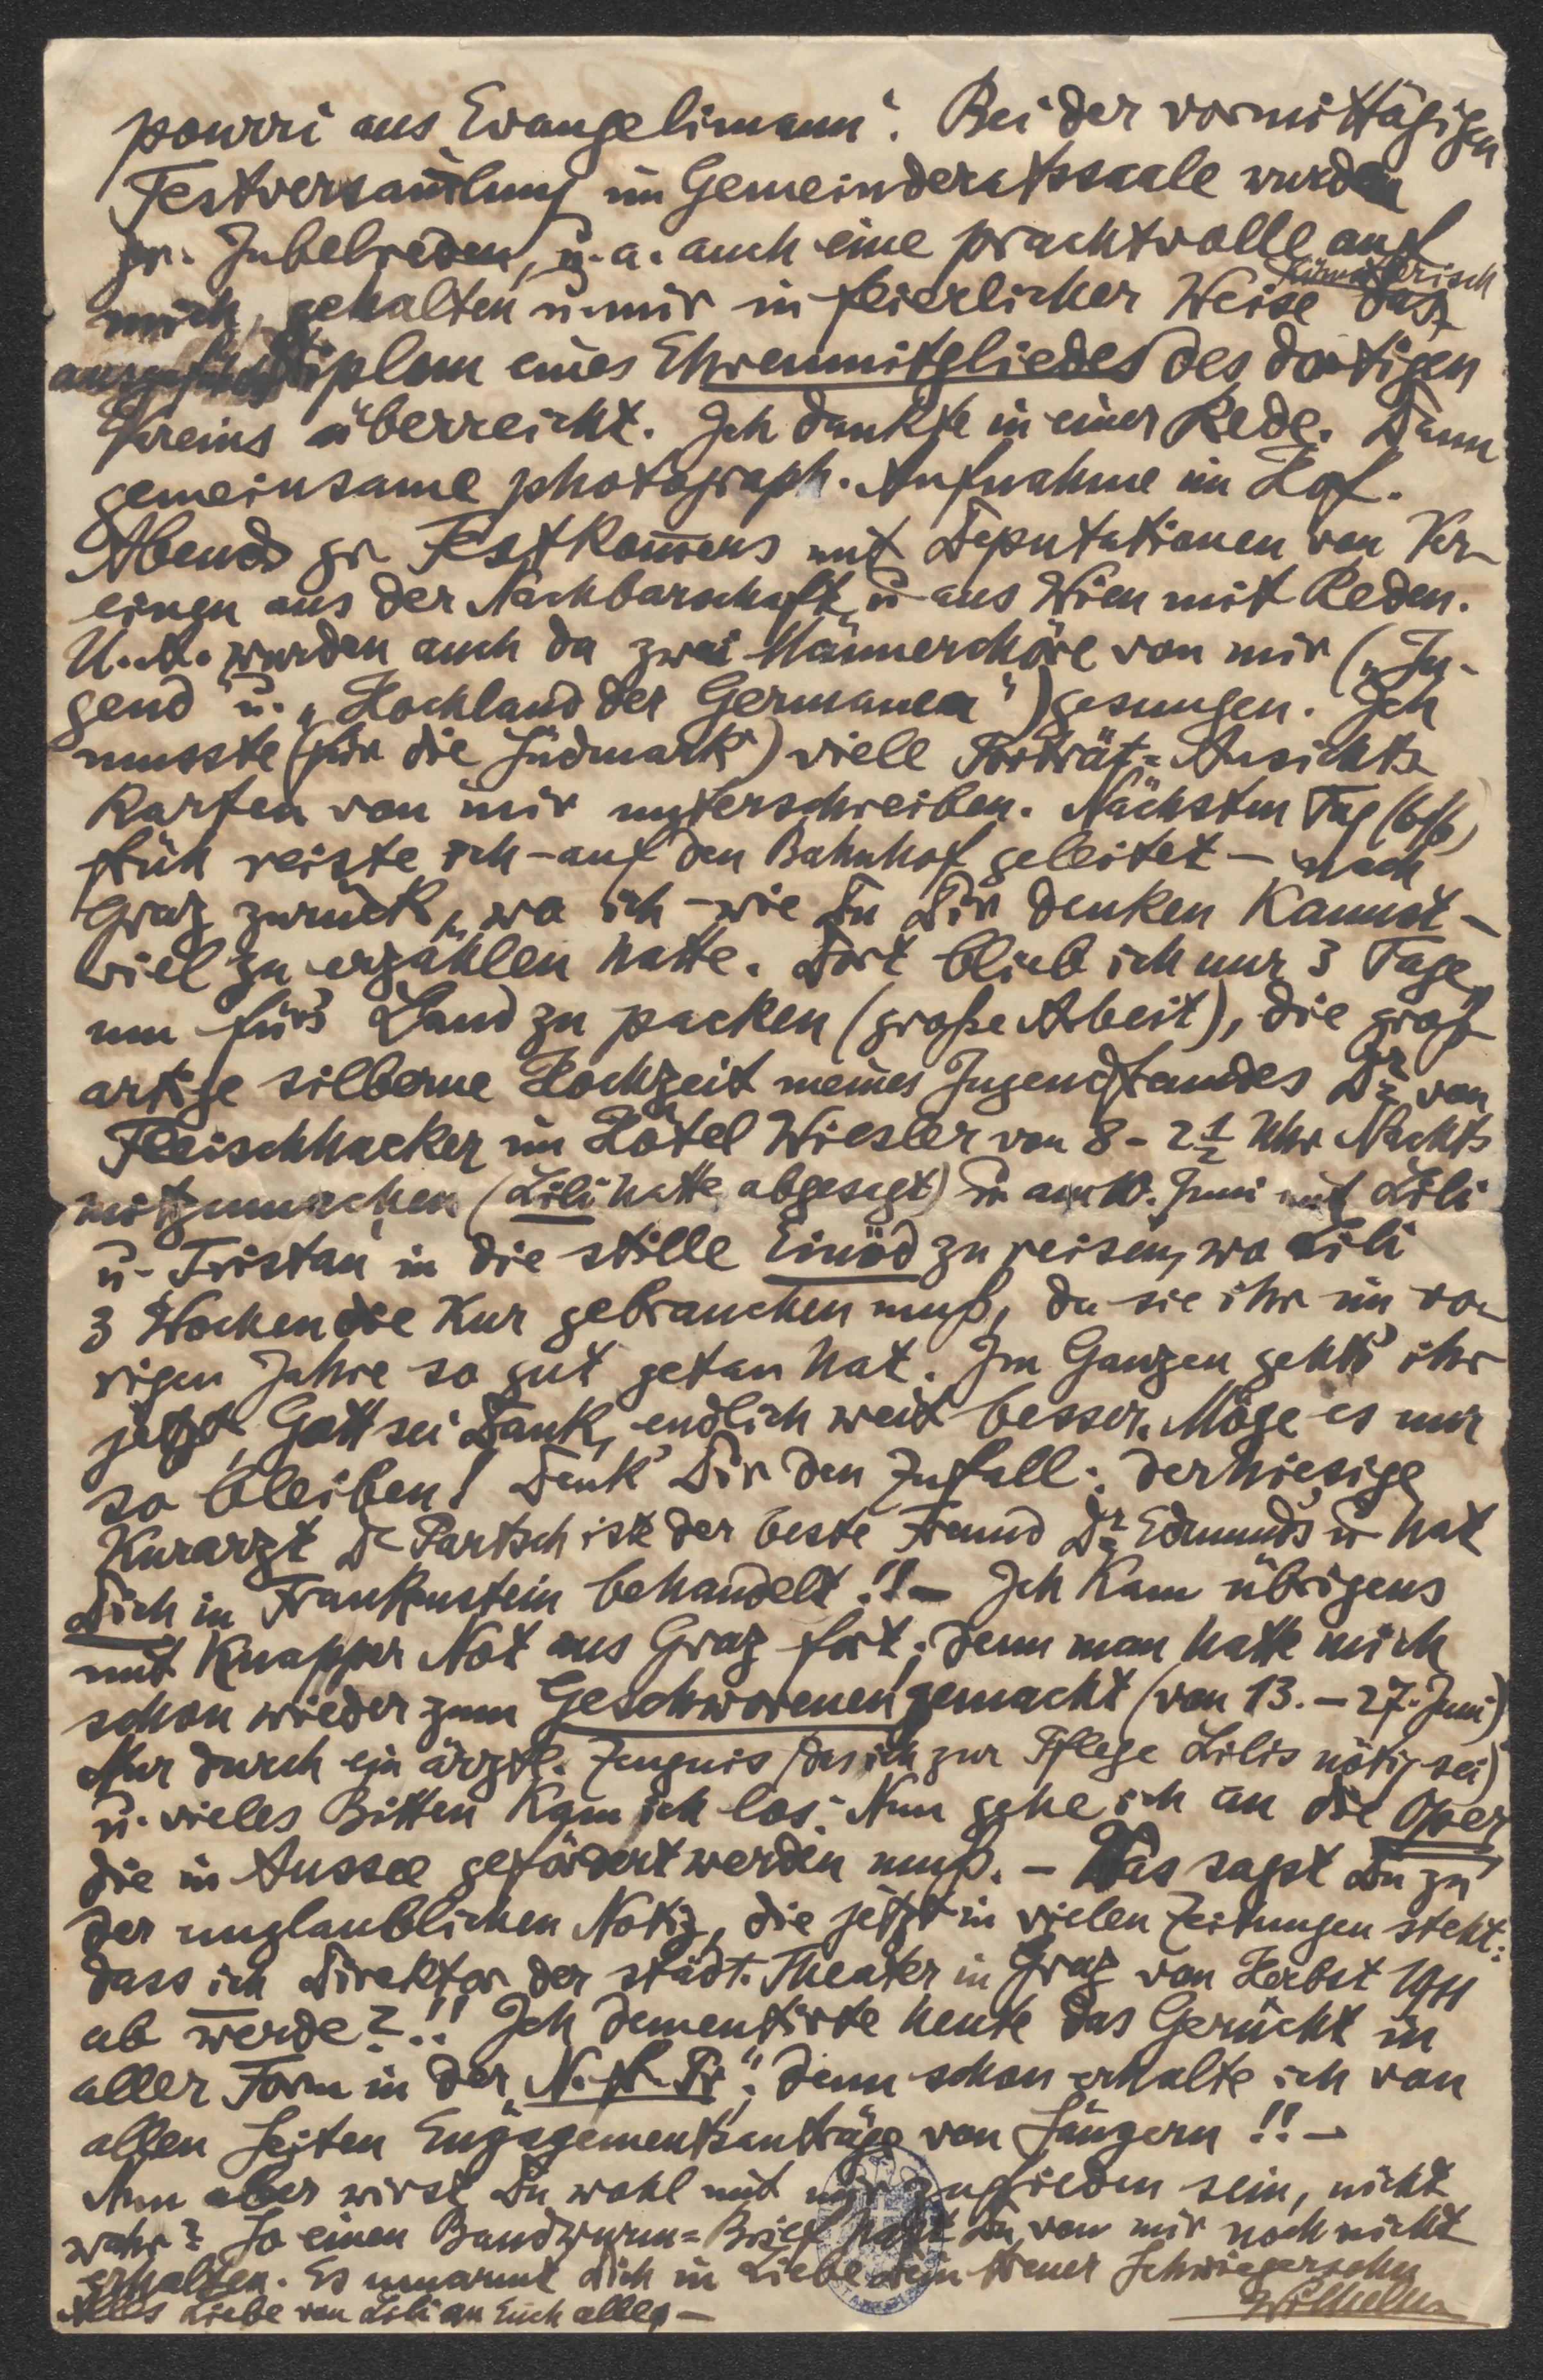 pourri aus „Evangelimann“. Bei der vormittägigen
Festversam̅lung im Gemeinderatssaale wurden
gr. Jubelreden, u. a. auch eine prachtvolle auf
mich, gehalten u. mir in feierlicher Weise das künstlerisch
ausgeführte Diplom eines Ehrenmitgliedes des dortigen
Vereins überreicht. Ich dankte in einer Rede. Dann
gemeinsame photograph. Aufnahme im Hof.
Abends gr. Festkom̅ers mit Deputationen von Ver-
einen aus der Nachbarschaft u. aus Wien mit Reden.
U. A. wurden auch da zwei Männerchöre von mir („Ju-
gend“ u. „Hochland der Germanen“) gesungen. Ich
musste (für die Südmark) viele Porträt-Ansichts-
karten von mir unterschreiben. Nächsten Tag (6/6)
früh reiste ich – auf den Bahnhof geleitet – nach
Graz zurück, wo ich – wie Du Dir denken kannst –
viel zu erzählen hatte. Dort blieb ich nur 3 Tage,
um fürs Land zu packen (große Arbeit), die groß-
artige silberne Hochzeit meines Jugendfreundes Dr. von
Fleischhacker im Hôtel Wiesler von 8 – 2½ Uhr Nachts
mitzumachen (Lili hatte abgesagt) u. am 10. Juni mit Lili
u. Tristan in die stille Einöd zu reisen, wo Lili
3 Wochen die Kur gebrauchen muß, da sie ihr im vo-
rigen Jahre so gut getan hat. Im Ganzen geht's ihr
jetzt, Gott sei Dank, endlich weit besser. Möge es nur
so bleiben! Denk' Dir den Zufall: der hiesige
Kurarzt Dr. Partsch ist der beste Freund Dr. Edmunds u. hat
Dich in Frankenstein behandelt!! – Ich kam übrigens
mit knapper Not aus Graz fort; denn man hatte mich
schon wieder zum Geschworenen gemacht (von 13. – 27. Juni)
Nur durch ein ärztl. Zeugnis (das ich zur Pflege Lilis nötig sei)
u. vieles Bitten kam ich los. Nun gehe ich an die Oper,
die in Aussee gefördert werden muß. – Was sagst Du zu
der unglaublichen Notiz, die jetzt in vielen Zeitungen steht:
dass ich Direktor der städt. Theater in Graz von Herbst 1911
ab werde?!! Ich dementirte heute das Gerücht in
aller Form in der „N. fr. Pr.“; denn schon erhalte ich von
allen Seiten Engagementsanträge von Sängern!! –
Nun aber wirst Du wohl mit mir zufrieden sein, nicht
wahr? So einen Bandwurm-Brief hast Du von mir noch nicht
erhalten. Es umarmt Dich in Liebe Dein treuer Schwiegersohn
Wilhelm
Alles Liebe von Lili an Euch alle, –